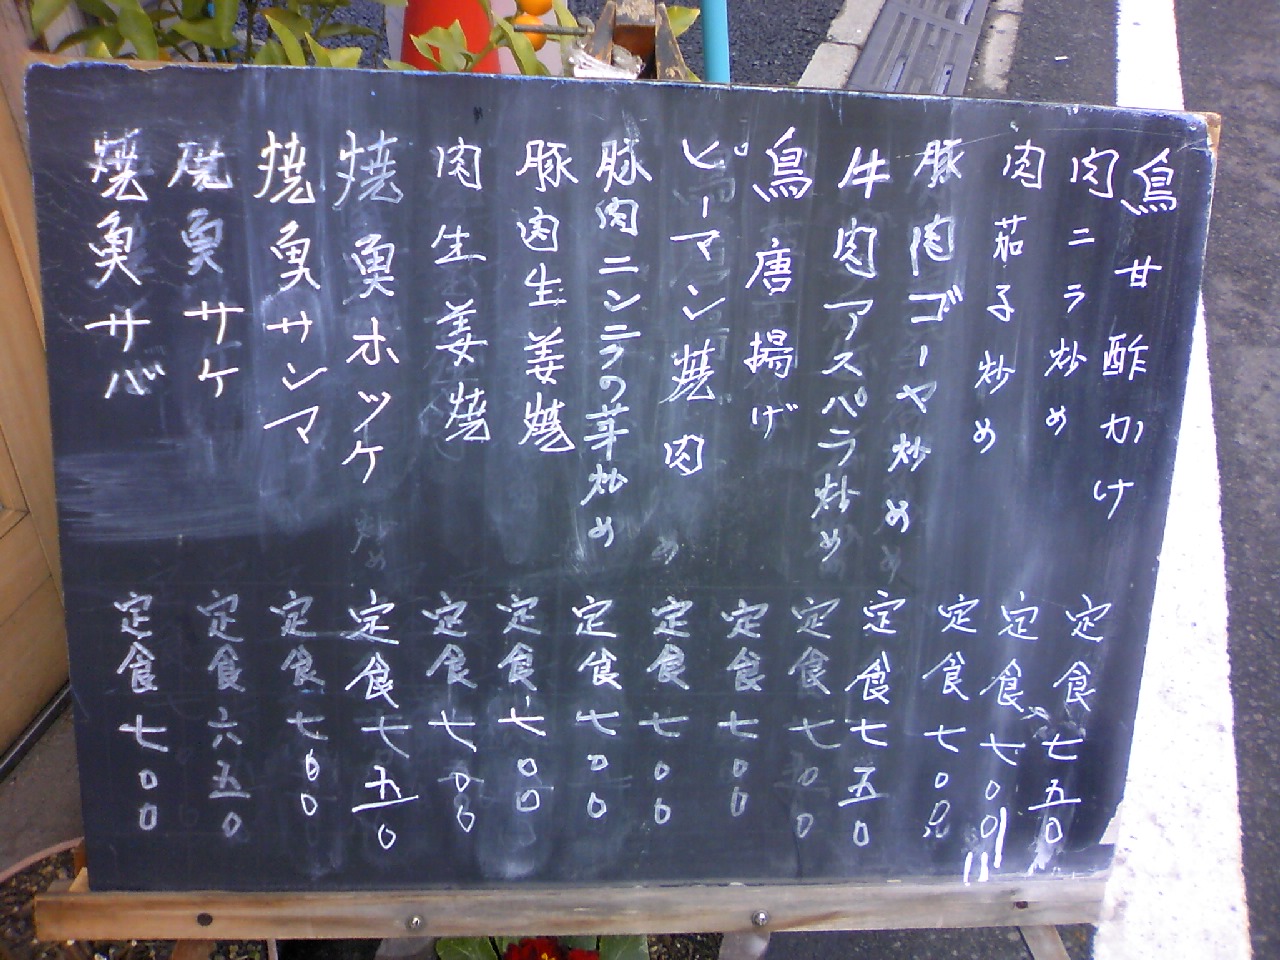 鳥甘酢かけ 定食 七五0
肉ニラ炒め 定食 七00
肉茄子炒め 定食 七00
豚肉ゴーヤ炒め 定食 七五0
牛肉アスパラ炒め 定食 七00
鳥唐揚げ 定食 七00
ピーマン焼肉 定食 七00
豚肉ニンニクの芽炒め 定食 七00
豚肉生姜焼 定食 七00
肉生姜焼 定食 七00
焼魚ホッケ 定食 七五0
焼魚サンマ 定食 七00
焼魚サケ 定食 六五0
焼魚サバ 定食 七00